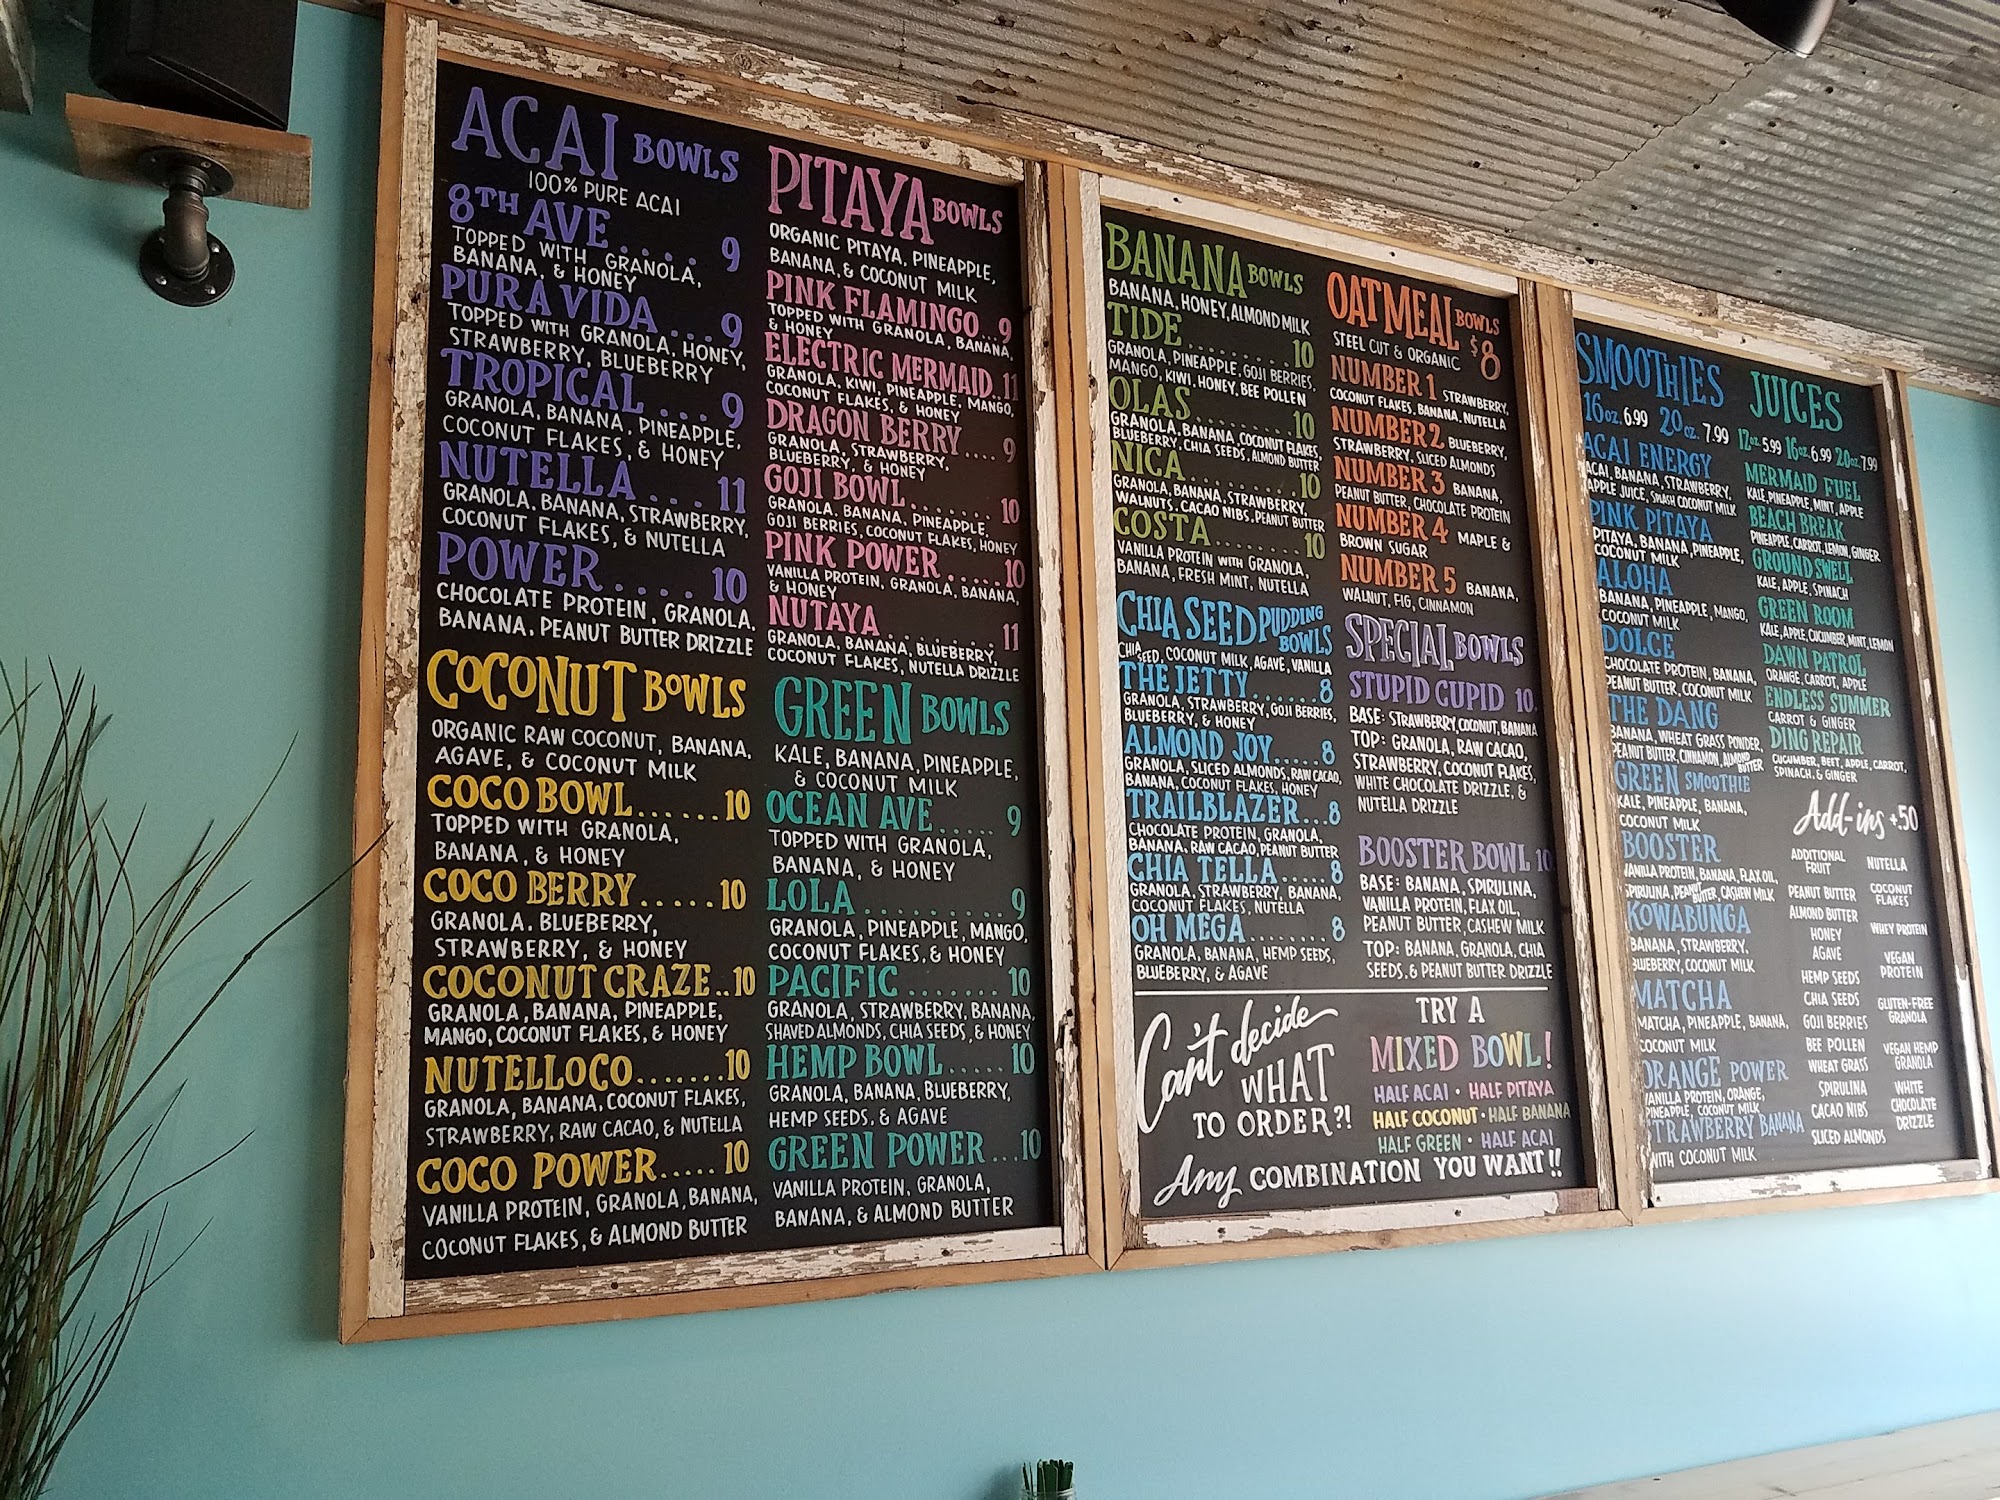 ACAI BOWLS
100% PURE ACAI
8TH AVE.... 9
TOPPED WITH GRANOLA,
BANANA, & HONEY
PURA VIDA ... 9
TOPPED WITH GRANOLA, HONEY,
STRAWBERRY, BLUEBERRY
TROPICAL ... 9
GRANOLA, BANANA, PINEAPPLE,
COCONUT FLAKES, & HONEY
NUTELLA ... 11
GRANOLA, BANANA, STRAWBERRY,
COCONUT FLAKES, & NUTELLA
POWER .... 10
CHOCOLATE PROTEIN, GRANOLA,
BANANA, PEANUT BUTTER DRIZZLE
COCONUT BOWLS
ORGANIC RAW COCONUT, BANANA,
AGAVE, & COCONUT MILK
COCO BOWL...... 10
TOPPED WITH GRANOLA,
BANANA, & HONEY
COCO BERRY..... 10
GRANOLA. BLUEBERRY,
STRAWBERRY, & HONEY
COCONUT CRAZE.. 10
GRANOLA, BANANA, PINEAPPLE,
MANGO, COCONUT FLAKES, & HONEY
NUTELLOCO....... 10
GRANOLA, BANANA, COCONUT FLAKES,
STRAWBERRY, RAW CACAO, & NUTELLA
COCO POWER..... 10
VANILLA PROTEIN, GRANOLA, BANANA,
COCONUT FLAKES, & ALMOND BUTTER
PITAYA BOWLS
ORGANIC PITAYA, PINEAPPLE,
BANANA, & COCONUT MILK
PINK FLAMINGO...9
TOPPED WITH GRANOLA, BANANA,
& HONEY
ELECTRIC MERMAID..11
GRANOLA, KIWI, PINEAPPLE, MANGO,
COCONUT FLAKES, & HONEY
DRAGON BERRY.... 9
GRANOLA, STRAWBERRY,
BLUEBERRY, & HONEY
GOJI BOWL....... 10
GRANOLA, BANANA, PINEAPPLE,
GOJI BERRIES, COCONUT FLAKES, HONEY
PINK POWER......10
VANILLA PROTEIN, GRANOLA, BANANA,
& HONEY
NUTAYA......... 11
GRANOLA, BANANA, BLUEBERRY,
COCONUT FLAKES, NUTELLA DRIZZLE
GREEN BOWLS
KALE, BANANA, PINEAPPLE,
& COCONUT MILK
OCEAN AVE..... 9
TOPPED WITH GRANOLA,
BANANA, & HONEY
LOLA ......... 9
GRANOLA, PINEAPPLE, MANGO,
COCONUT FLAKES, & HONEY
PACIFIC ....... 10
GRANOLA, STRAWBERRY, BANANA,
SHAVED ALMONDS, CHIA SEEDS, & HONEY
HEMP BOWL..... 10
GRANOLA, BANANA, BLUEBERRY,
HEMP SEEDS, & AGAVE
GREEN POWER...10
VANILLA PROTEIN, GRANOLA,
BANANA, & ALMOND BUTTER
BANANA BOWLS
BANANA, HONEY, ALMOND MILK
TIDE ......... 10
GRANOLA, PINEAPPLE, GOJI BERRIES,
MANGO, KIWI, HONEY, BEE POLLEN
OLAS ......... 10
GRANOLA, BANANA, COCONUT FLAKES,
BLUEBERRY, CHIA SEEDS, ALMOND BUTTER
NICA ......... 10
GRANOLA, BANANA, STRAWBERRY,
WALNUTS, CACAO NIBS, PEANUT BUTTER
COSTA........ 10
VANILLA PROTEIN WITH GRANOLA,
BANANA, FRESH MINT, NUTELLA
CHIA SEED PUDDING BOWLS
CHIA SEED, COCONUT MILK, AGAVE, VANILLA
THE JETTY...... 8
GRANOLA, STRAWBERRY, GOJI BERRIES,
BLUEBERRY, & HONEY
ALMOND JOY.... 8
GRANOLA, SLICED ALMONDS, RAW CACAO,
BANANA, COCONUT FLAKES, HONEY
TRAILBLAZER...8
CHOCOLATE PROTEIN, GRANOLA,
BANANA, RAW CACAO, PEANUT BUTTER
CHIA TELLA ..... 8
GRANOLA, STRAWBERRY, BANANA,
COCONUT FLAKES, NUTELLA
OH MEGA ....... 8
GRANOLA, BANANA, HEMP SEEDS,
BLUEBERRY, & AGAVE
OATMEAL BOWLS
STEEL CUT & ORGANIC $8
NUMBER 1 STRAWBERRY,
COCONUT FLAKES, BANANA, NUTELLA
NUMBER 2 BLUEBERRY,
STRAWBERRY, SLICED ALMONDS
NUMBER 3 BANANA,
PEANUT BUTTER, CHOCOLATE PROTEIN
NUMBER 4 MAPLE &
BROWN SUGAR
NUMBER 5 BANANA,
WALNUT, FIG, CINNAMON
SPECIAL BOWLS
STUPID CUPID 10
BASE: STRAWBERRY, COCONUT, BANANA
TOP: GRANOLA, RAW CACAO,
STRAWBERRY, COCONUT FLAKES,
WHITE CHOCOLATE DRIZZLE, &
NUTELLA DRIZZLE
BOOSTER BOWL 10
BASE: BANANA, SPIRULINA,
VANILLA PROTEIN, FLAX OIL,
PEANUT BUTTER, CASHEW MILK
TOP: BANANA, GRANOLA, CHIA
SEEDS, & PEANUT BUTTER DRIZZLE
Can't decide
WHAT
TO ORDER?!
TRY A
MIXED BOWL!
HALF ACAI • HALF PITAYA
HALF COCONUT • HALF BANANA
HALF GREEN • HALF ACAI
Any COMBINATION YOU WANT!!
SMOOTHIES
16oz. 6.99 20oz. 7.99
ACAI ENERGY
ACAI, BANANA, STRAWBERRY,
APPLE JUICE, SPLASH COCONUT MILK
PINK PITAYA
PITAYA, BANANA, PINEAPPLE,
COCONUT MILK
ALOHA
BANANA, PINEAPPLE, MANGO,
COCONUT MILK
DOLCE
CHOCOLATE PROTEIN, BANANA,
PEANUT BUTTER, COCONUT MILK
THE DANG
BANANA, WHEAT GRASS POWDER,
PEANUT BUTTER, CINNAMON, ALMOND BUTTER
GREEN SMOOTHIE
KALE, PINEAPPLE, BANANA,
COCONUT MILK
BOOSTER
VANILLA PROTEIN, BANANA, FLAX OIL,
SPIRULINA, PEANUT BUTTER, CASHEW MILK
KOWABUNGA
BANANA, STRAWBERRY,
BLUEBERRY, COCONUT MILK
MATCHA
MATCHA, PINEAPPLE, BANANA,
COCONUT MILK
ORANGE POWER
VANILLA PROTEIN, ORANGE,
PINEAPPLE, COCONUT MILK
STRAWBERRY BANANA
WITH COCONUT MILK
JUICES
12oz. 5.99 16oz. 6.99 20oz. 7.99
MERMAID FUEL
KALE, PINEAPPLE, MINT, APPLE
BEACH BREAK
PINEAPPLE, CARROT, LEMON, GINGER
GROUND SWELL
KALE, APPLE, SPINACH
GREEN ROOM
KALE, APPLE, CUCUMBER, MINT, LEMON
DAWN PATROL
ORANGE, CARROT, APPLE
ENDLESS SUMMER
CARROT & GINGER
DING REPAIR
CUCUMBER, BEET, APPLE, CARROT,
SPINACH, & GINGER
Add-ins +.50
ADDITIONAL
FRUIT
PEANUT BUTTER
ALMOND BUTTER
HONEY
AGAVE
HEMP SEEDS
CHIA SEEDS
GOJI BERRIES
BEE POLLEN
WHEAT GRASS
SPIRULINA
CACAO NIBS
SLICED ALMONDS
NUTELLA
COCONUT
FLAKES
WHEY PROTEIN
VEGAN
PROTEIN
GLUTEN-FREE
GRANOLA
VEGAN HEMP
GRANOLA
WHITE
CHOCOLATE
DRIZZLE